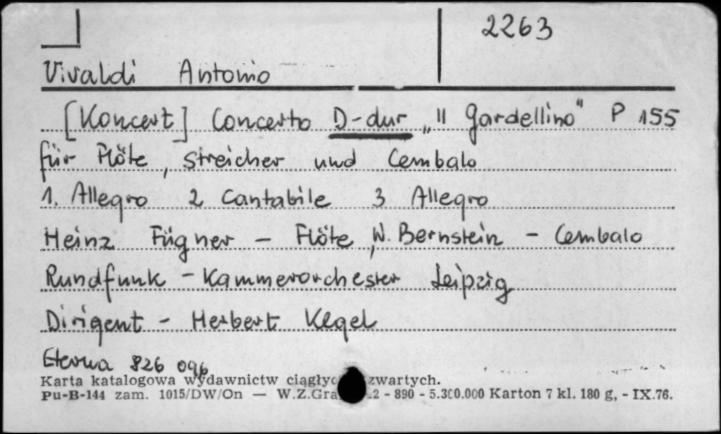 2263
Vivaldi Antonio
[Koncert] Concerto D-dur „Il Gardellino" P 155
für Flöte, Streicher und Cembalo
1. Allegro 2 Cantabile 3 Allegro
Heinz Fügner - Flöte, W. Bernstein - Cembalo
Rundfunk - Kammerorchester Leipzig
Dirigent - Herbert Kegel
Eterna 826 096
Karta katalogowa wydawnictw zwartych.
Pu-B-144 zam. 1015/DW/On — W.Z.Gra 2 - 890 - 5.300.000 Karton 7 kl. 180 g, - IX.76.